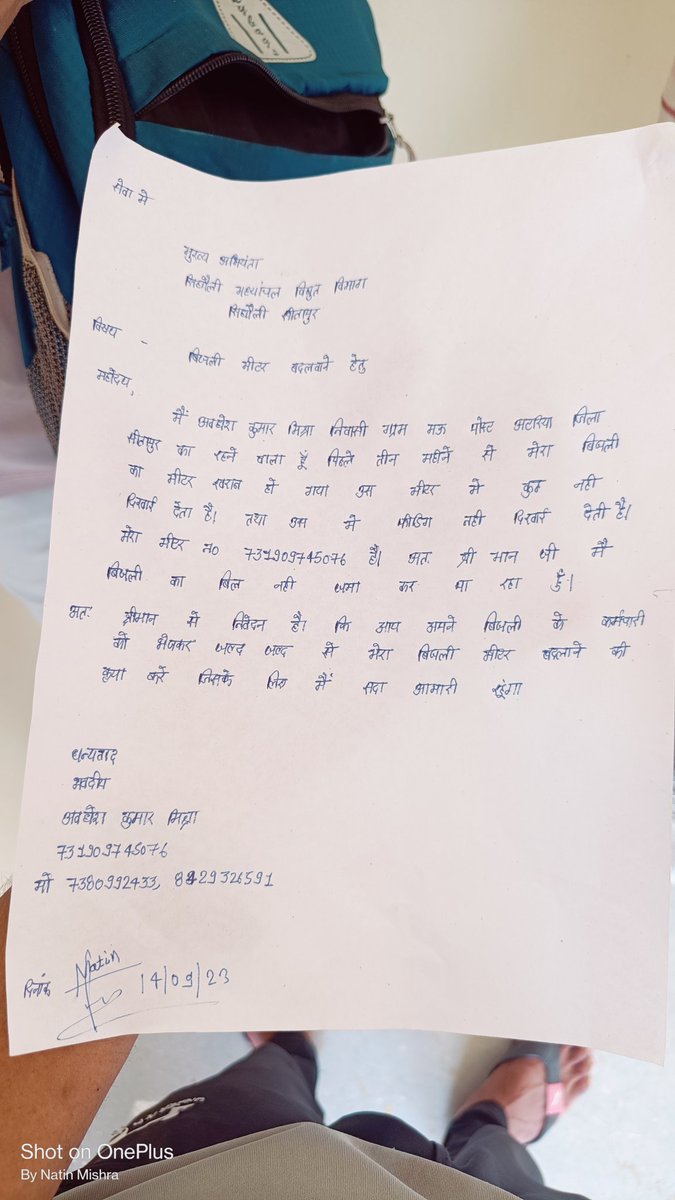 सेवा मे
मुख्य अभियंता
सिधौली मध्यांचल विद्युत विभाग
सिधौली सीतापुर
विषय -
बिजली मीटर बदलवाने हेतु
महोदय,
मैं अवधेश कुमार मिश्रा निवासी ग्राम मऊ पोस्ट अटरिया जिला
सीतापुर का रहने वाला हूँ पिछले तीन महीने से मेरा बिजली
का मीटर खराब हो गया उस मीटर में कुछ नही
दिखाई देता है। तथा उस मे रीडिंग नही दिखाई देती है।
मेरा मीटर no 731909745076 है। अतः श्री मान जी मैं
बिजली का बिल नही जमा कर पा रहा हूँ।
अतः श्रीमान से निवेदन है। कि आप अपने बिजली के कर्मचारी
को भेजकर जल्द जल्द से मेरा बिजली मीटर बदलाने की
कृपा करें जिसके लिए मैं सदा आभारी रहूंगा
धन्यवाद
भवदीय
अवधेश कुमार मिश्रा
731909745076
मो 7380992433, 8429326591
दिनांक Natin 14/09/23
Shot on OnePlus
By Natin Mishra